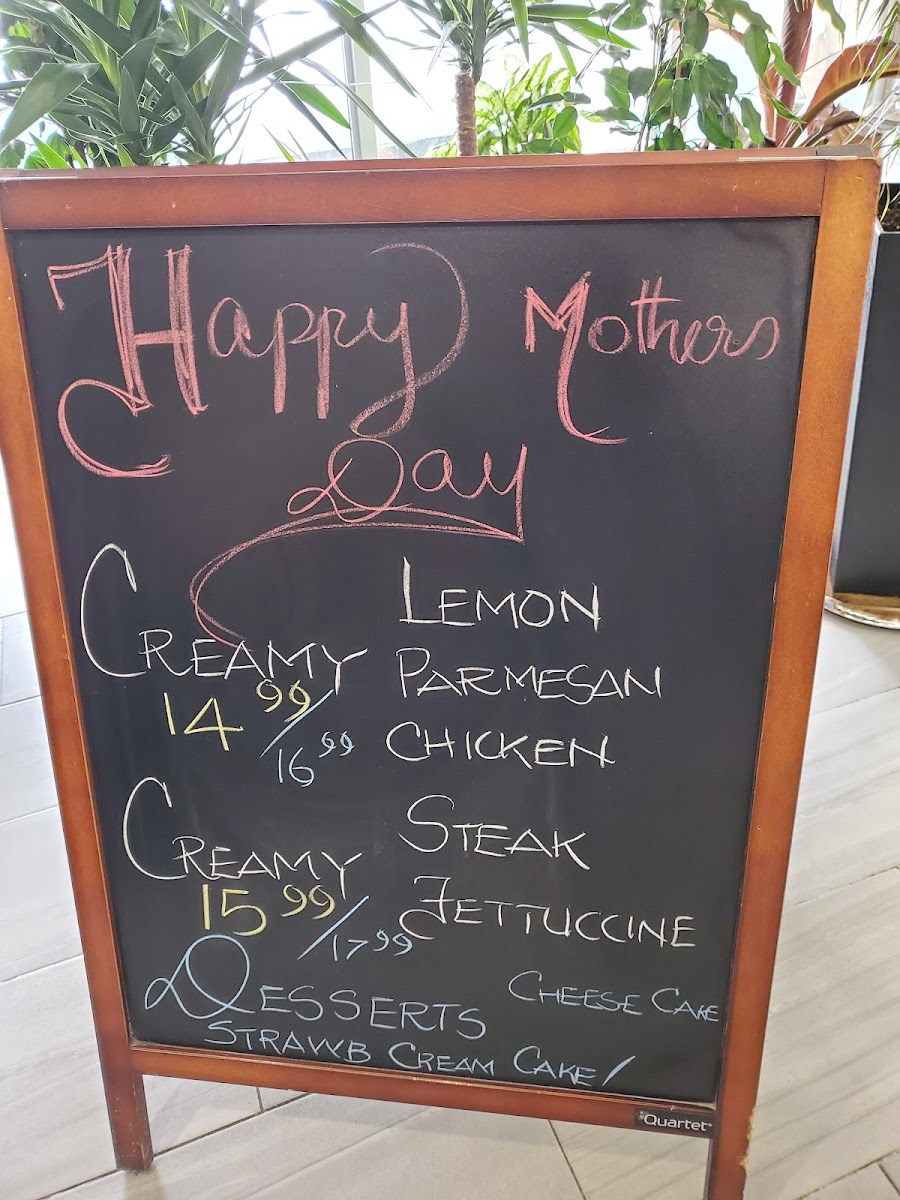 Happy Mothers
Day
CREAMY LEMON
PARMESAN
CHICKEN
14.99/16.99
CREAMY STEAK
FETTUCCINE
15.99/17.99
DESSERTS
STRAWB CREAM CAKE/
CHEESE CAKE
Quartet